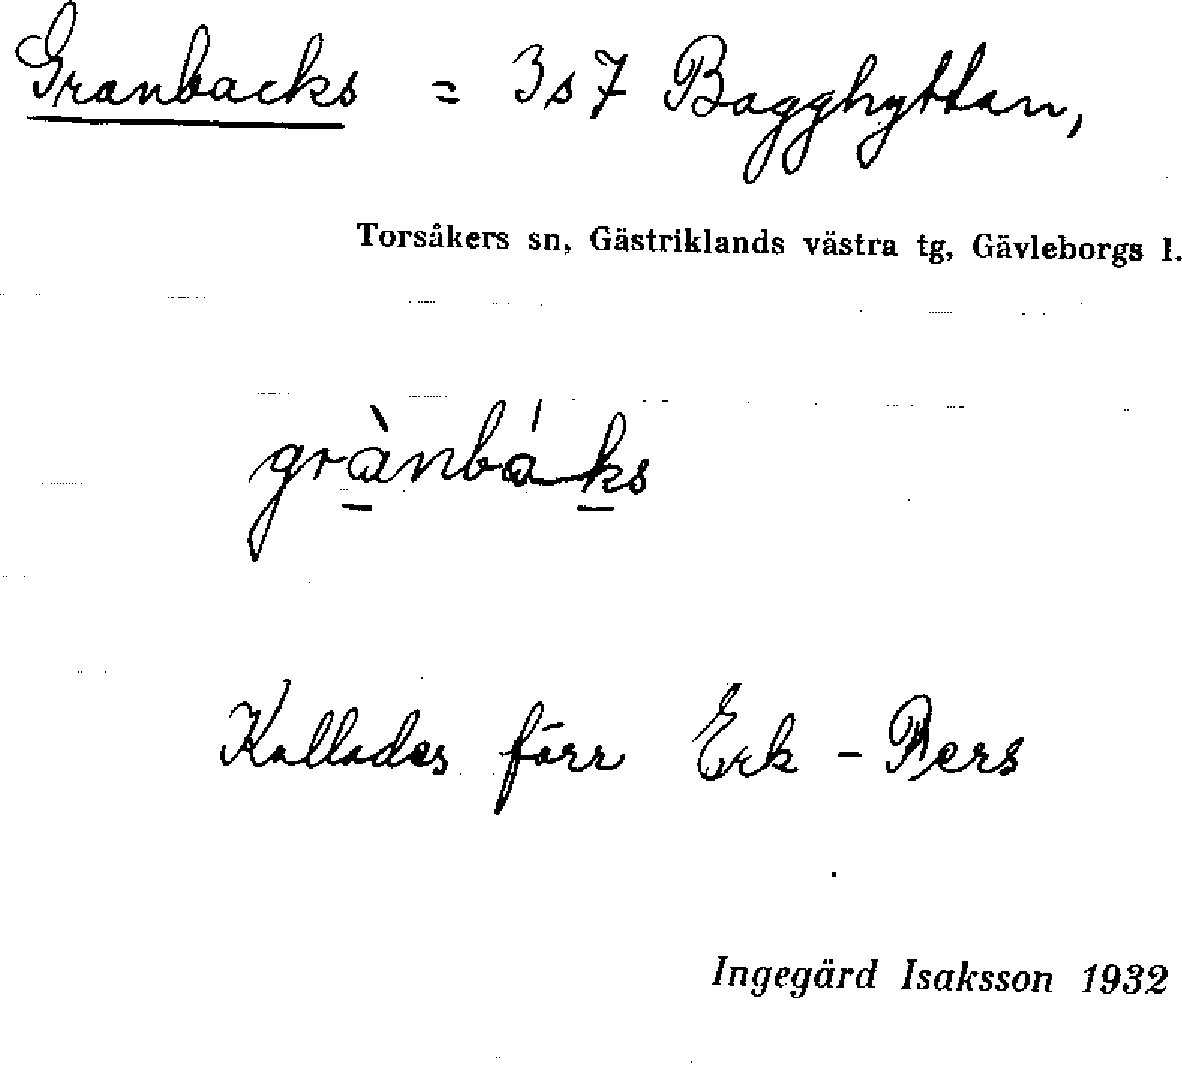 Granbacks = 3s7 Bagghyttan,
Torsåkers sn, Gästriklands västra tg, Gävleborgs l.
grànbáks
Kallades förr Erk - Pers
Ingegärd Isaksson 1932